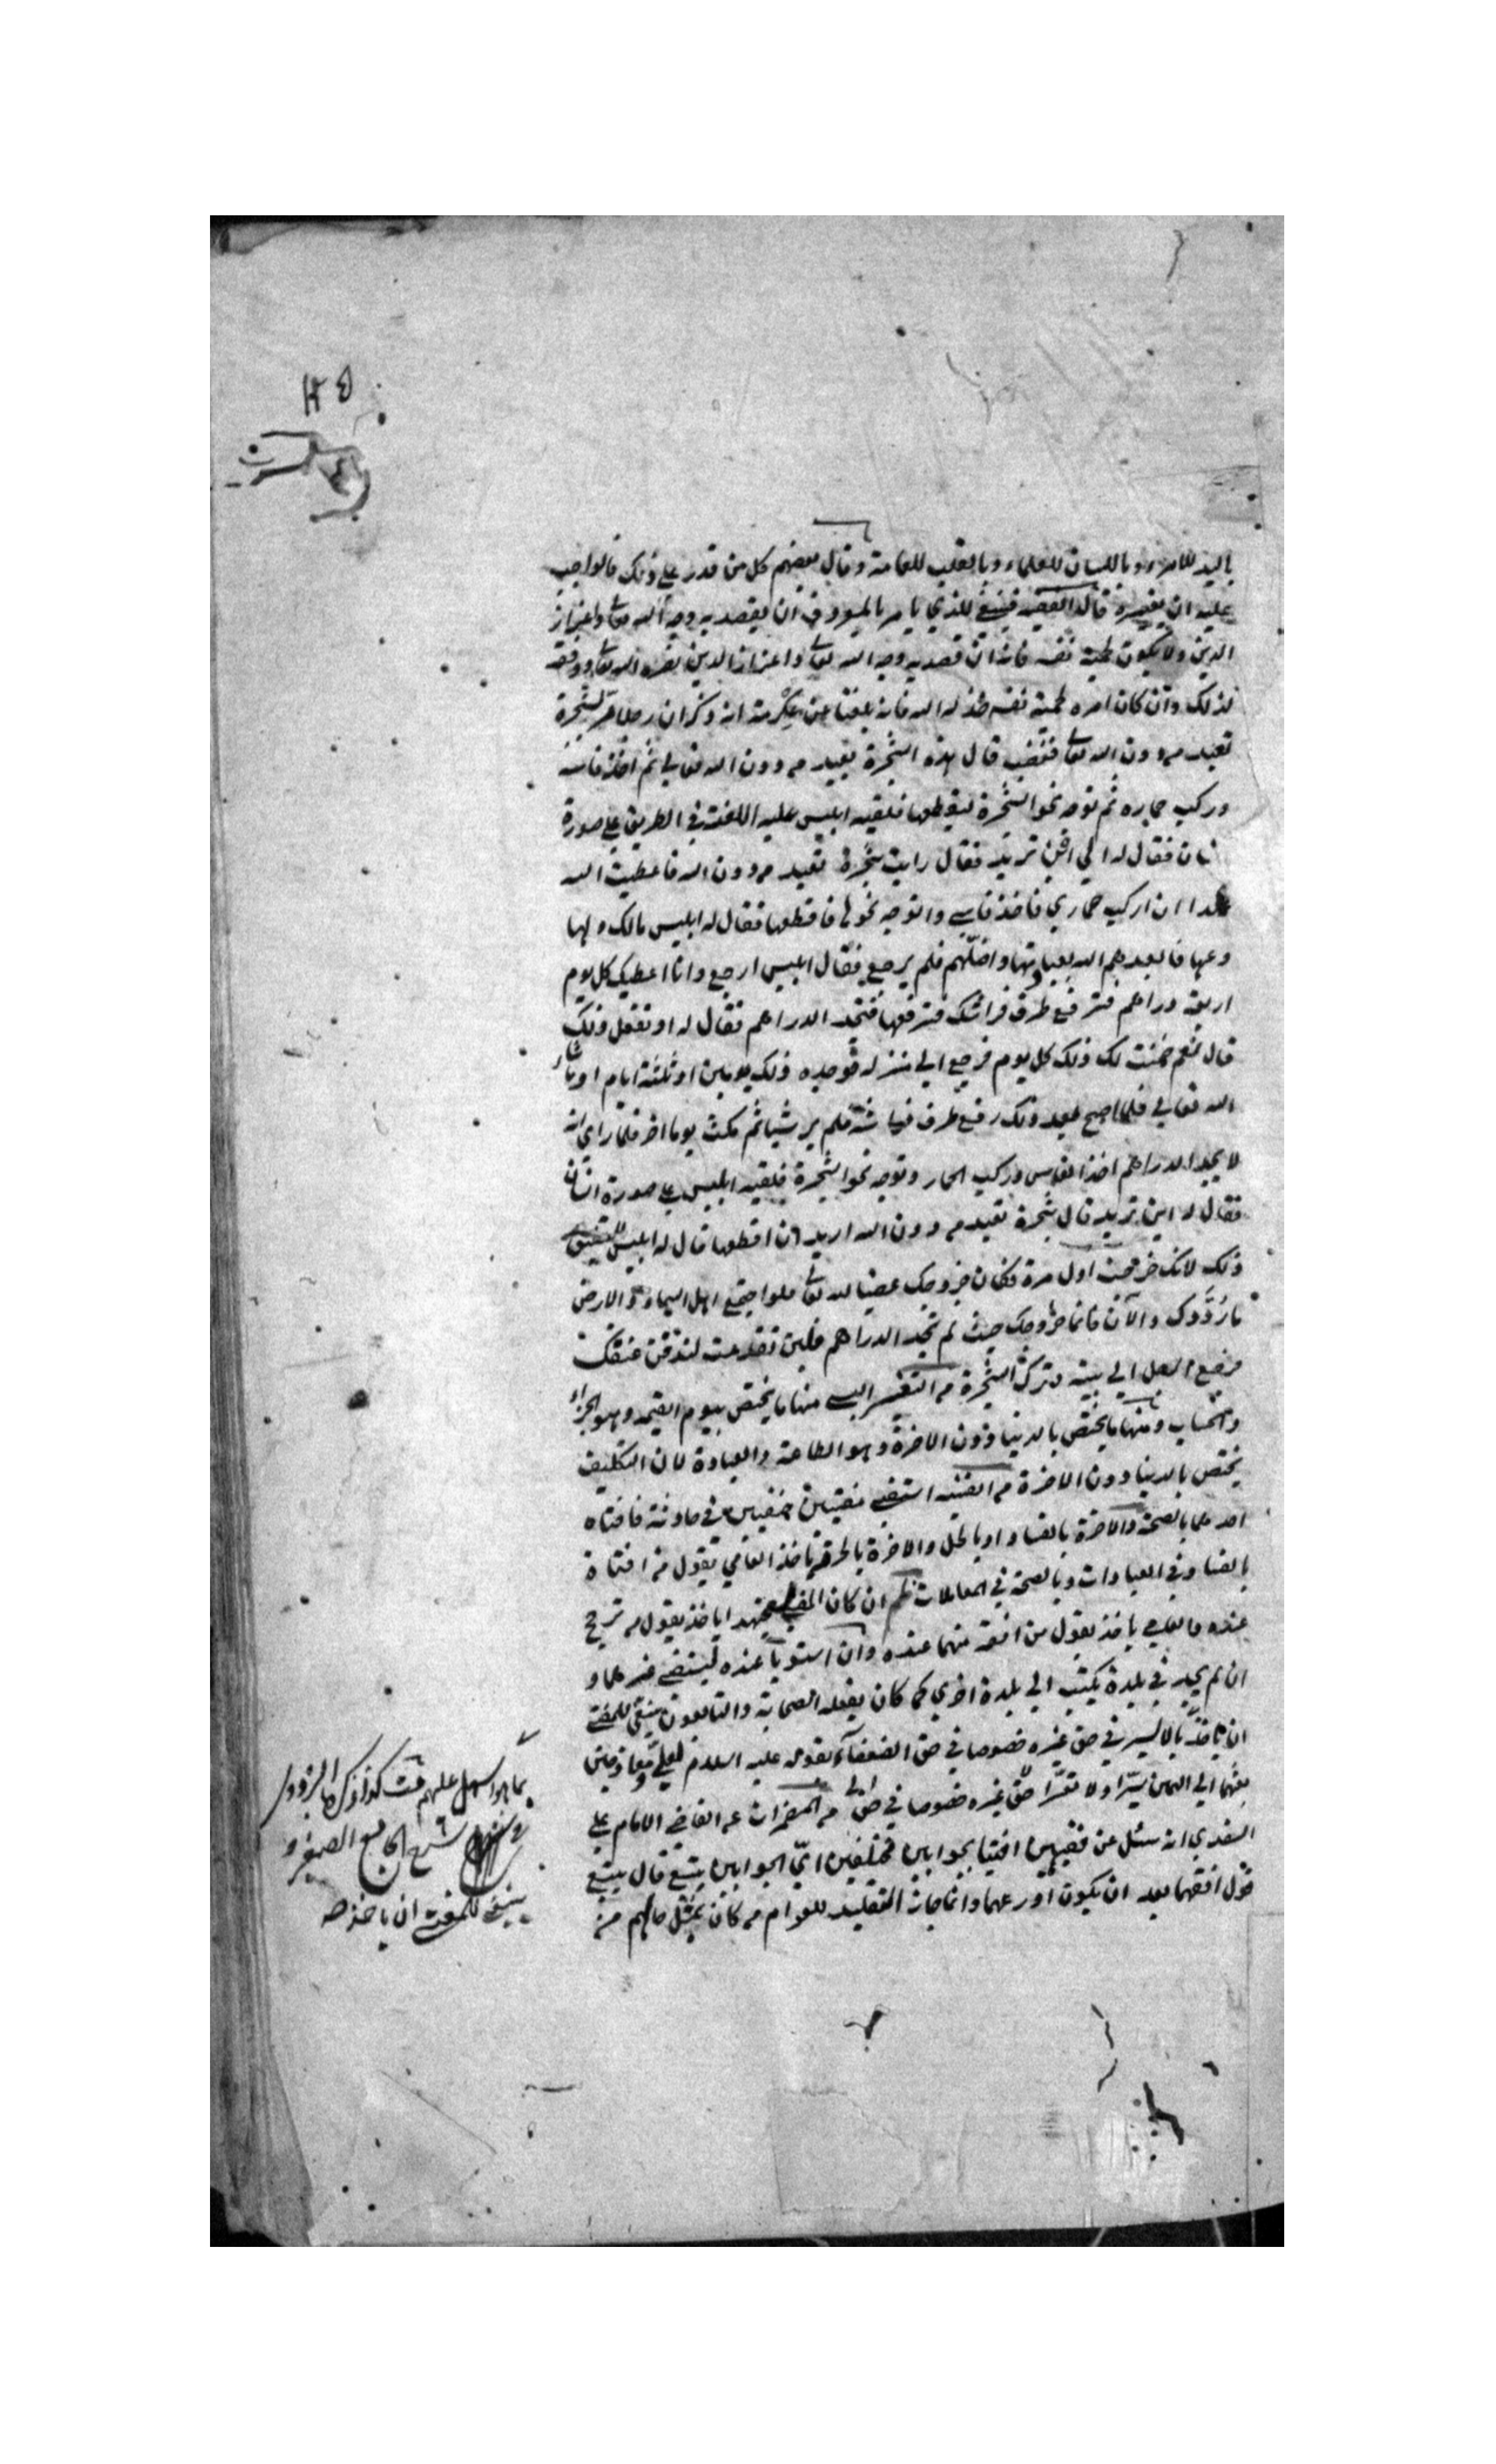 باليد للامراء وباللسان للعلماء وبالقلب للعامة وقال بعضهم كل من قدر على ذلك فالواجب
عليه ان يغيره قال الفقيه فينبغي للذي يامر بالمعروف ان يقصد به وجه الله تعا واعزاز
الدين ولا يكون لحمية نفسه فانه ان قصد به وجه الله تعا واعزاز الدين نصره الله تعا ووفقه
لذلك وان كان امره لحمية نفسه خذله الله فانه بلغنا عن عكرمة انه ذكر ان رجلا مر بشجرة
تعبد من دون الله تعا فغضب قال هذه الشجرة تعبد من دون الله تعالى ثم اخذ فاسه
وركب حماره ثم توجه نحو الشجرة ليقطعها فلقيه ابليس عليه اللعنة في الطريق على صورة
انسان فقال له الى اين تريد فقال رايت شجرة تعبد من دون الله فاعطيت الله
عهدا ان اركب حماري فاخذ فاسي واتوجه نحوها فاقطعها فقال له ابليس مالك ولها
دعها فابعدهم الله بعبادتها واضلهم فلم يرجع فقال ابليس ارجع وانا اعطيك كل يوم
اربعة دراهم فترفع طرف فراشك فترفعها فتجد الدراهم فقال له او تفعل ذلك
قال نعم ضمنت لك ذلك كل يوم فرجع الى منزله فوجده ذلك يومين او ثلثة ايام او ما شاء
الله تعالى فلما اصبح بعد ذلك رفع طرف فراشه فلم ير شيا ثم مكث يوما اخر فلما راى انه
لا يجد الدراهم اخذ الفاس وركب الحمار وتوجه نحو الشجرة فلقيه ابليس على صورة انسان
فقال له اين تريد قال شجرة تعبد من دون الله اريد ان اقطعها قال له ابليس لا تطيق
ذلك لانك خرجت اول مرة فكان خروجك غضبا لله تعا فلو اجتمع اهل السماء والارض
ما ردوك والآن فانما خروجك حيث لم تجد الدراهم فلين تقدمت لندقن عنقك
فرجع الرجل الى بيته وترك الشجرة من التفسير منها ما يختص بيوم القيمة وهو الجزاء
والحساب ومنها ما يختص بالدنيا دون الاخرة وهو الطاعة والعبادة لان التكليف
يختص بالدنيا دون الاخرة من القنية استفتى مفتيين حنفيين في حادثة فافتاه
احدهما بالصحة والاخرة بالفساد او بالحل والاخرة بالحرمة ياخذ العامي بقول من افتاه
بالفساد في العبادات وبالصحة في المعاملات ظم ان كان المفتي مجتهدا ياخذ بقول من ترجح
عنده والعامي ياخذ بقول من افقه منهما عنده وان استويا عنده ليستفتي غيرهما و
ان لم يجد في بلدة يكتب الى بلدة اخرى كما كان يفعله الصحابة والتابعون ينبغي للمفتي
ان ياخذ بالايسر في حق غيره خصوصا في حق الضعفاء لقوله عليه السلام لعلي ومعاذ حين
بعثهما الى اليمن يسرا ولا تعسرا حق غيره خصوصا في حق من المضمرات عن القاضي الامام علي
السغدي انه سئل عن فقيهين افتيا بجوابين مختلفين اي الجوابين يتبع قال يتبع
قول افقهما بعد ان يكون اورعهما وانما جاز التقليد للعوام من كان بمثل حالهم من
بما هو اسهل عليهم كذا ذكره البزدوي
في شرح الجامع الصغير و
ينبغي للمفتي ان ياخذ